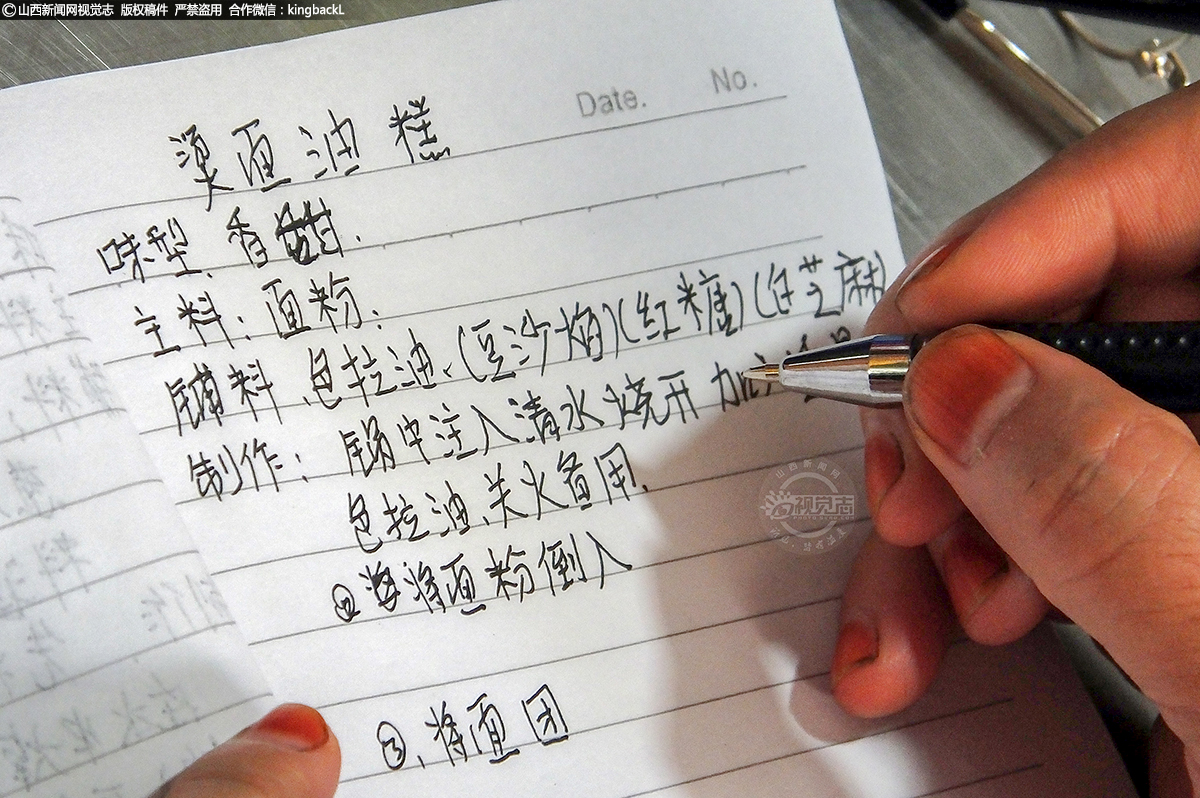 ©山西新闻网视觉志 版权稿件 严禁盗用 合作微信：kingbackL
Date. No.
烫面油糕
味型、香甜.
主料：面粉.
辅料、色拉油、(豆沙馅)(红糖)(白芝麻)
制作：锅中注入清水烧开 加
色拉油、关火备用.
② 将面粉倒入
③、将面团
山西新闻网
视觉志